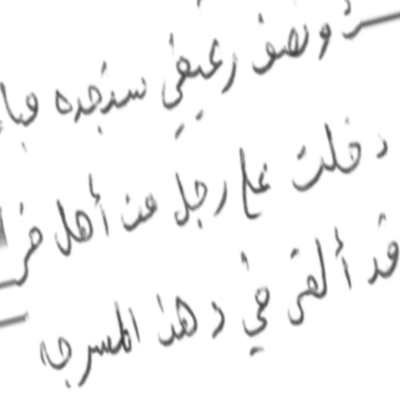 ونصف رغيفي ستجده
دخلت على رجل من أهل
قد ألقى في دهن المسرجه